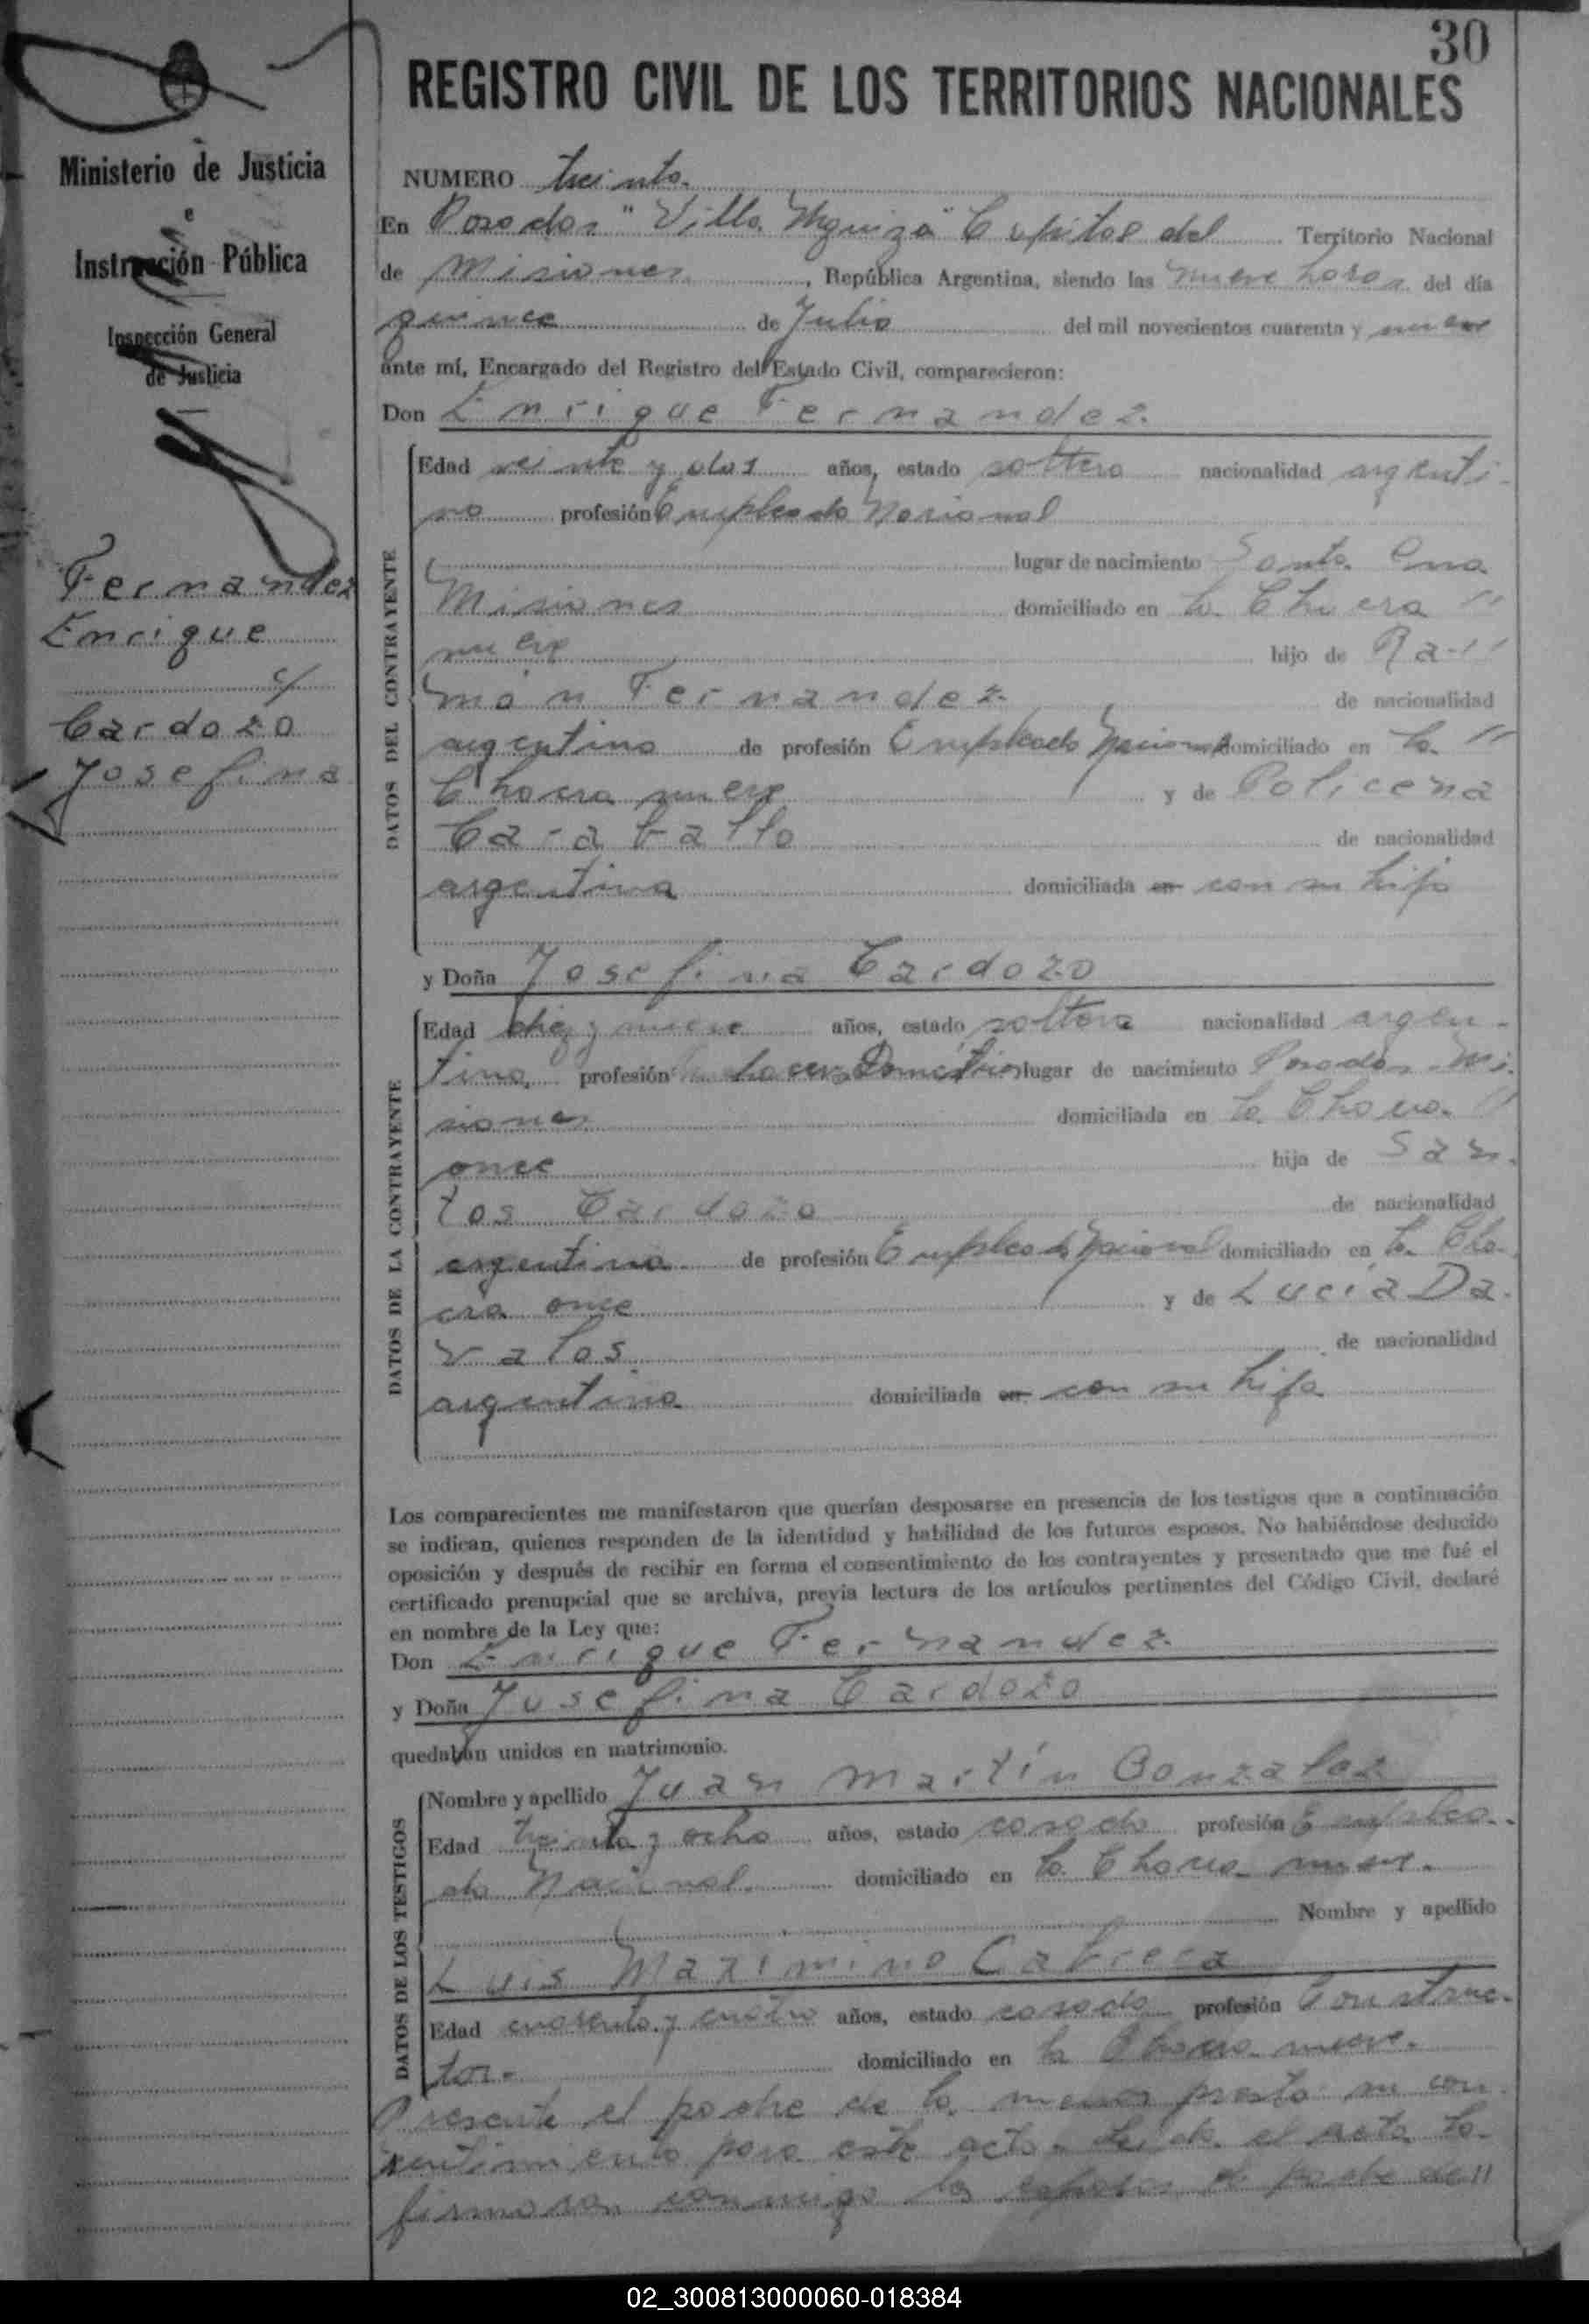 30
REGISTRO CIVIL DE LOS TERRITORIOS NACIONALES
Ministerio de Justicia
e
Instrucción Pública
Inspección General
de Justicia
Fernandez
Enrique
c/
Cardozo
Josefina
NUMERO treinta.
En Posadas "Villa Urquiza" Capital del Territorio Nacional
de Misiones, República Argentina, siendo las nueve horas del día
quince de Julio del mil novecientos cuarenta y nueve
ante mí, Encargado del Registro del Estado Civil, comparecieron:
Don Enrique Fernandez.
DATOS DEL CONTRAYENTE
Edad veinte y dos años, estado soltero nacionalidad argenti-
no profesión Empleado Nacional
lugar de nacimiento Santa Ana
Misiones domiciliado en la Chacra "
nueve hijo de Ra-"
món Fernandez. de nacionalidad
argentino de profesión Empleado Nacional domiciliado en la "
Chacra nueve y de Policena
Caraballo de nacionalidad
argentina domiciliada en con su hijo
y Doña Josefina Cardozo
DATOS DE LA CONTRAYENTE
Edad diez y nueve años, estado soltera nacionalidad argen-
tina, profesión Quehaceres Domésticos lugar de nacimiento Posadas Mi-
siones domiciliada en la Chacra "
once hija de San-
tos Cardozo de nacionalidad
argentino de profesión Empleado Nacional domiciliado en la Cha-
cra once y de Lucía Da-
valos de nacionalidad
argentina domiciliada en con su hija
Los comparecientes me manifestaron que querían desposarse en presencia de los testigos que a continuación
se indican, quienes responden de la identidad y habilidad de los futuros esposos. No habiéndose deducido
oposición y después de recibir en forma el consentimiento de los contrayentes y presentado que me fué el
certificado prenupcial que se archiva, previa lectura de los artículos pertinentes del Código Civil, declaré
en nombre de la Ley que:
Don Enrique Fernandez.
y Doña Josefina Cardozo
quedaban unidos en matrimonio.
DATOS DE LOS TESTIGOS
Nombre y apellido Juan Martín Gonzalez
Edad treinta y ocho años, estado casado profesión Emplea-
do Nacional. domiciliado en la Chacra nueve.
Nombre y apellido
Luis Maximino Cabrera
Edad cuarenta y cuatro años, estado casado profesión Construc-
tor. domiciliado en la Chacra nueve.
Presente el padre de la menor presta su con-
sentimiento para este acto. Leída el acta la
firmaron conmigo los esposos el padre de "
02_300813000060-018384